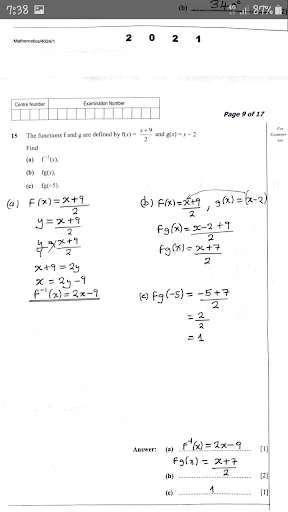 7:38
87%
(b) 34°
Mathematics/4024/1
2 0 2 1
Centre Number Examination Number
Page 9 of 17
For
Examiner's
use
15 The functions f and g are defined by f(x) = (x + 9)/2 and g(x) = x – 2
Find
(a) f⁻¹(x),
(b) fg(x),
(c) fg(–5).
(a) f(x) = x+9
2
y = x+9
2
y = x+9
1 2
x+9 = 2y
x = 2y-9
f⁻¹(x) = 2x-9
(b) f(x) = x+9 , g(x) = (x-2)
2
fg(x) = x-2+9
2
fg(x) = x+7
2
(c) fg(-5) = -5+7
2
= 2
2
= 1
Answer: (a) f⁻¹(x) = 2x-9 [1]
fg(x) = x+7
(b) 2 [2]
(c) 1 [1]